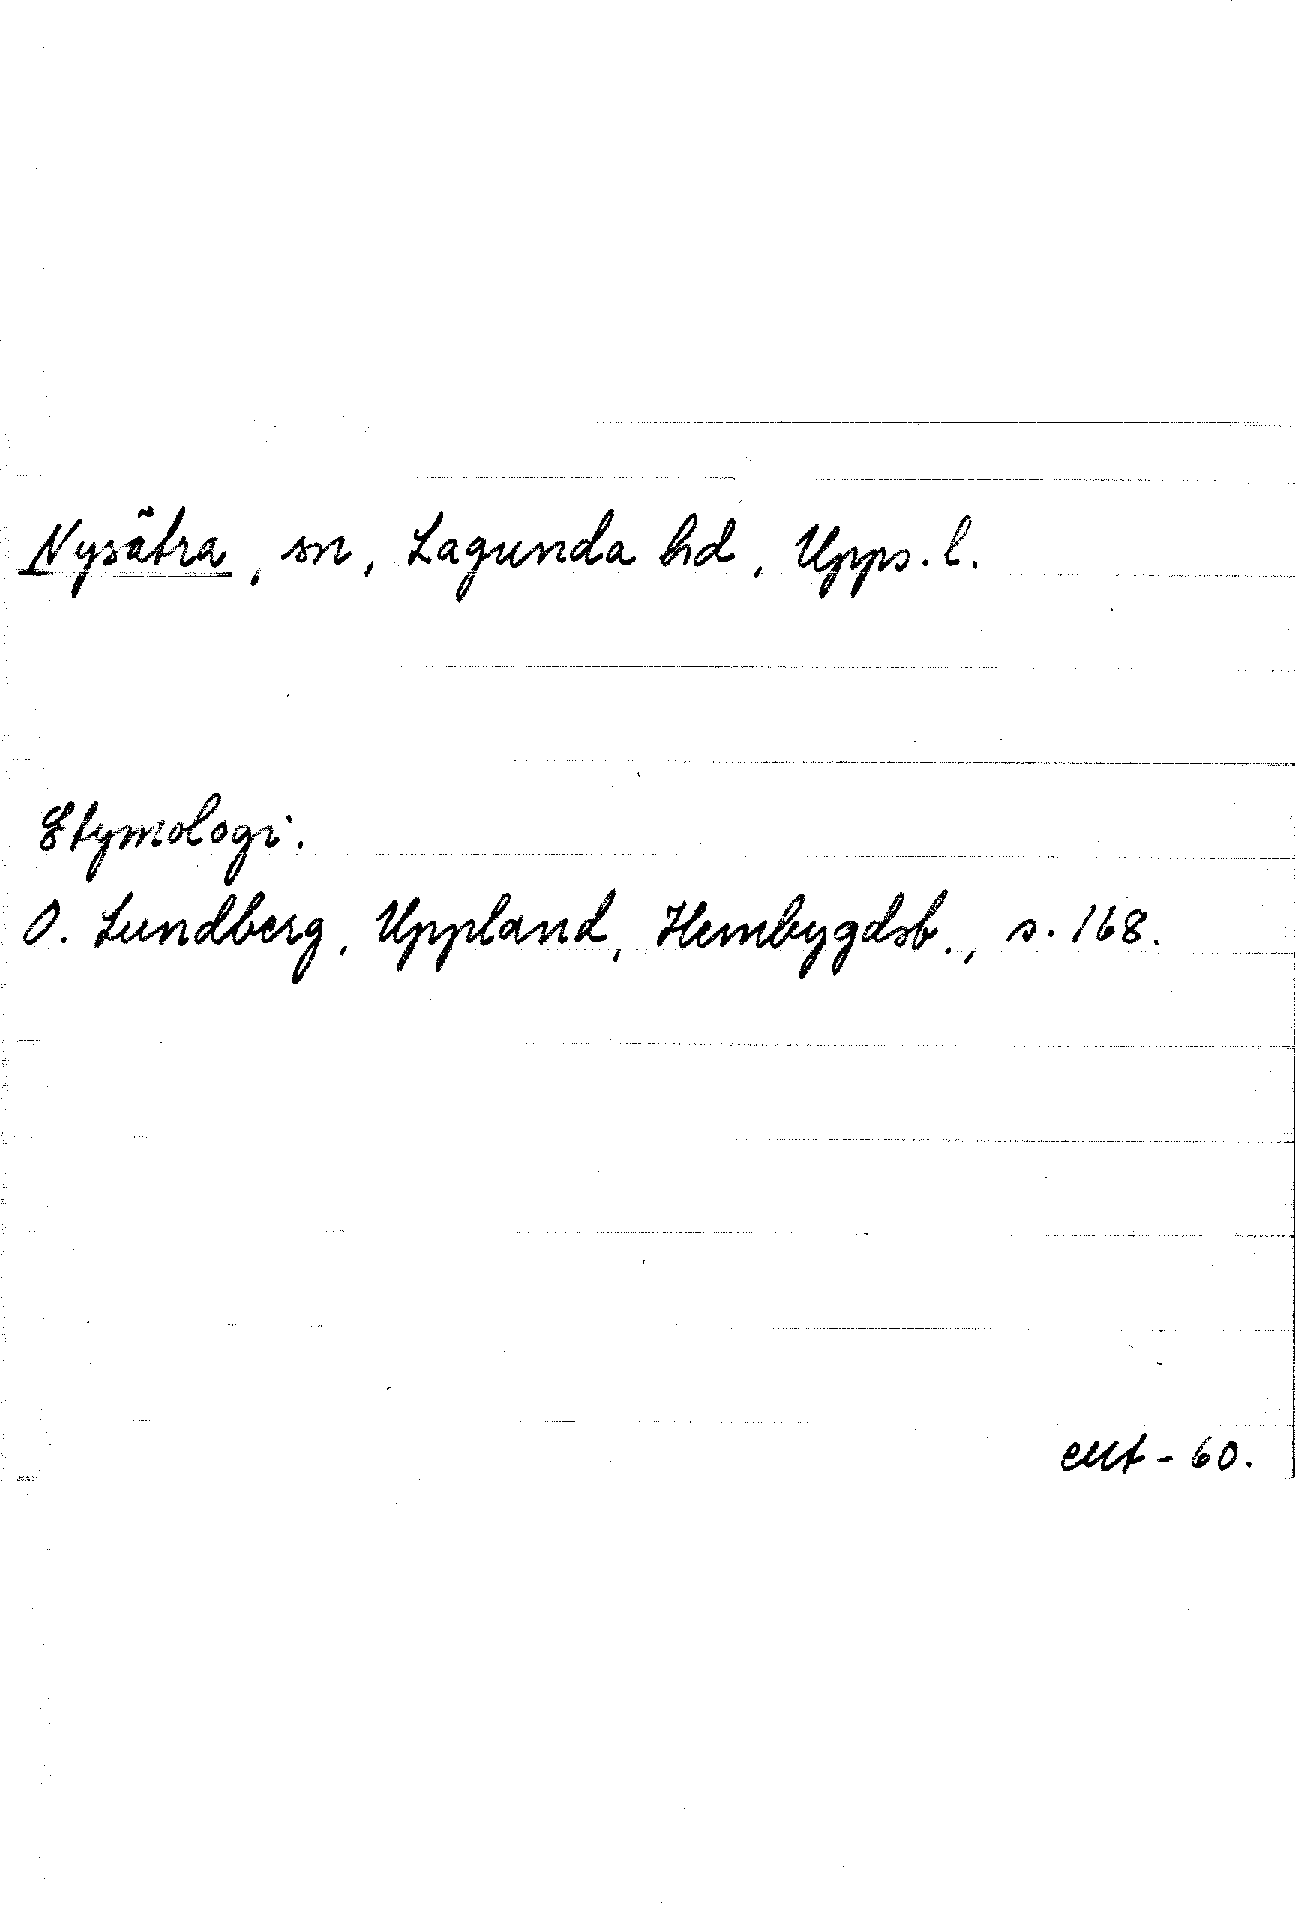 Nysätra, sn, Lagunda hd, Upps. l.
Etymologi.
O. Lundberg, Uppland, Hembygdsb., s. 168.
- 60.